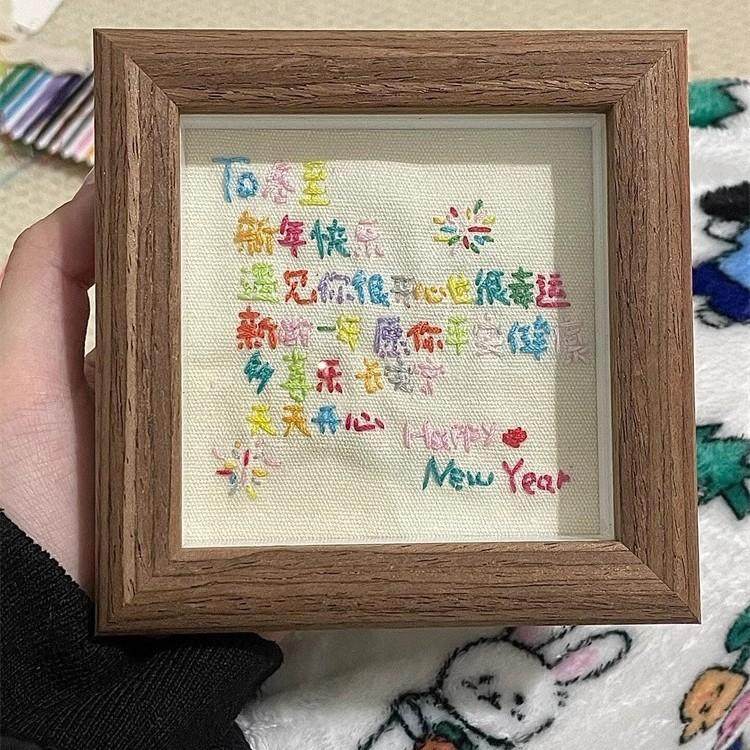 To春星
新年快乐
遇见你很开心也很幸运
新的一年 愿你平安健康
多喜乐 长安宁
天天开心
Happy
New Year